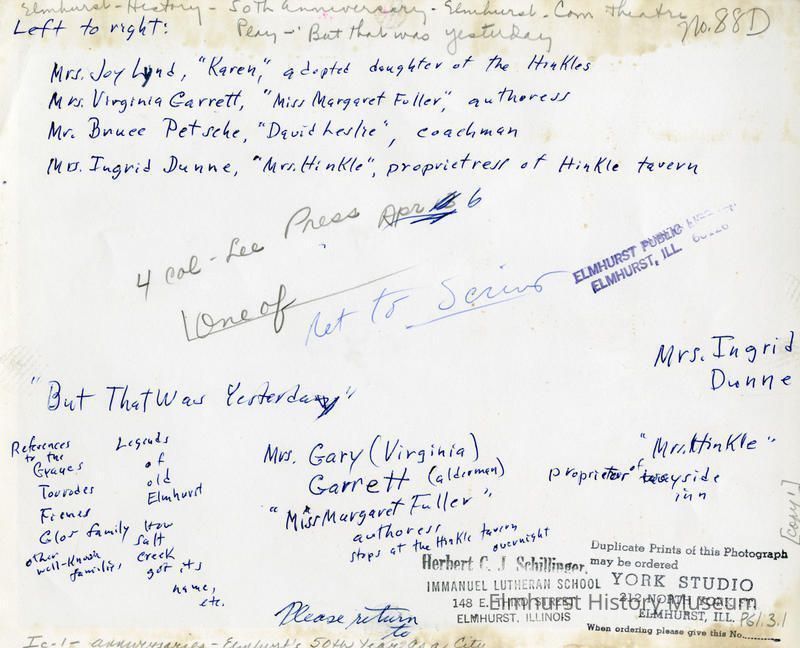 Elmhurst - History - 50th Anniversary - Elmhurst - Com Theatre
Play - "But that was yesterday
No. 88D
Left to right:
Mrs. Joy Lund, "Karen," adopted daughter of the Hinkles
Mrs. Virginia Garrett, "Miss Margaret Fuller", authoress
Mr. Bruce Petsche, "David Leslie", coachman
Mrs. Ingrid Dunne, "Mrs. Hinkle", proprietress of Hinkle tavern
4 col - Lee Press Apr 6
ELMHURST PUBLIC
ELMHURST, ILL. 60126
One of
Ret to
Mrs. Ingrid
Dunne
"But That Was Yesterday"
"Mrs. Hinkle"
proprietor of wayside
inn
References
to the
Graues
Torodes
Fienes
Glos family
other
well-known
families
Legends
of
old
Elmhurst
How
Salt
Creek
got its
name,
etc.
Mrs. Gary (Virginia)
Garrett (alderman)
"Miss Margaret Fuller"
authoress
stops at the Hinkle tavern
overnight
[copy 1]
Please return
to
Herbert C. J. Schillinger,
IMMANUEL LUTHERAN SCHOOL
148 E. THIRD STREET
ELMHURST, ILLINOIS
Duplicate Prints of this Photograph
may be ordered
YORK STUDIO
212 NORTH YORK ST.
ELMHURST, ILL.
When ordering please give this No.
Elmhurst History Museum
P61.3.1
Ic-1- anniversaries - Elmhurst's 50th Year as a City